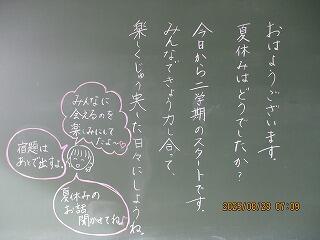 おはようございます。
夏休みはどうでしたか？
今日から二学期のスタートです。
みんなできょう力し合って、
楽しくじゅう実した日々にしようね。
みんなに
会えるのを
楽しみにして
たよ〜♡
宿題は
あとで出すよ。
夏休みの
お話
聞かせてね
2023/08/28 07:09